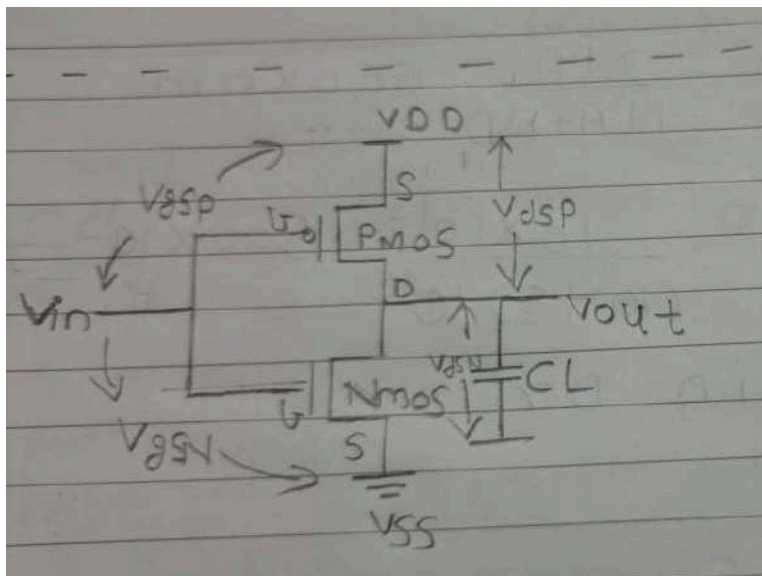 VDD
S
Vgsp
Vdsp
G
PMOS
D
Vin
Vout
VdsN
CL
G
NMOS
VgsN
S
VSS